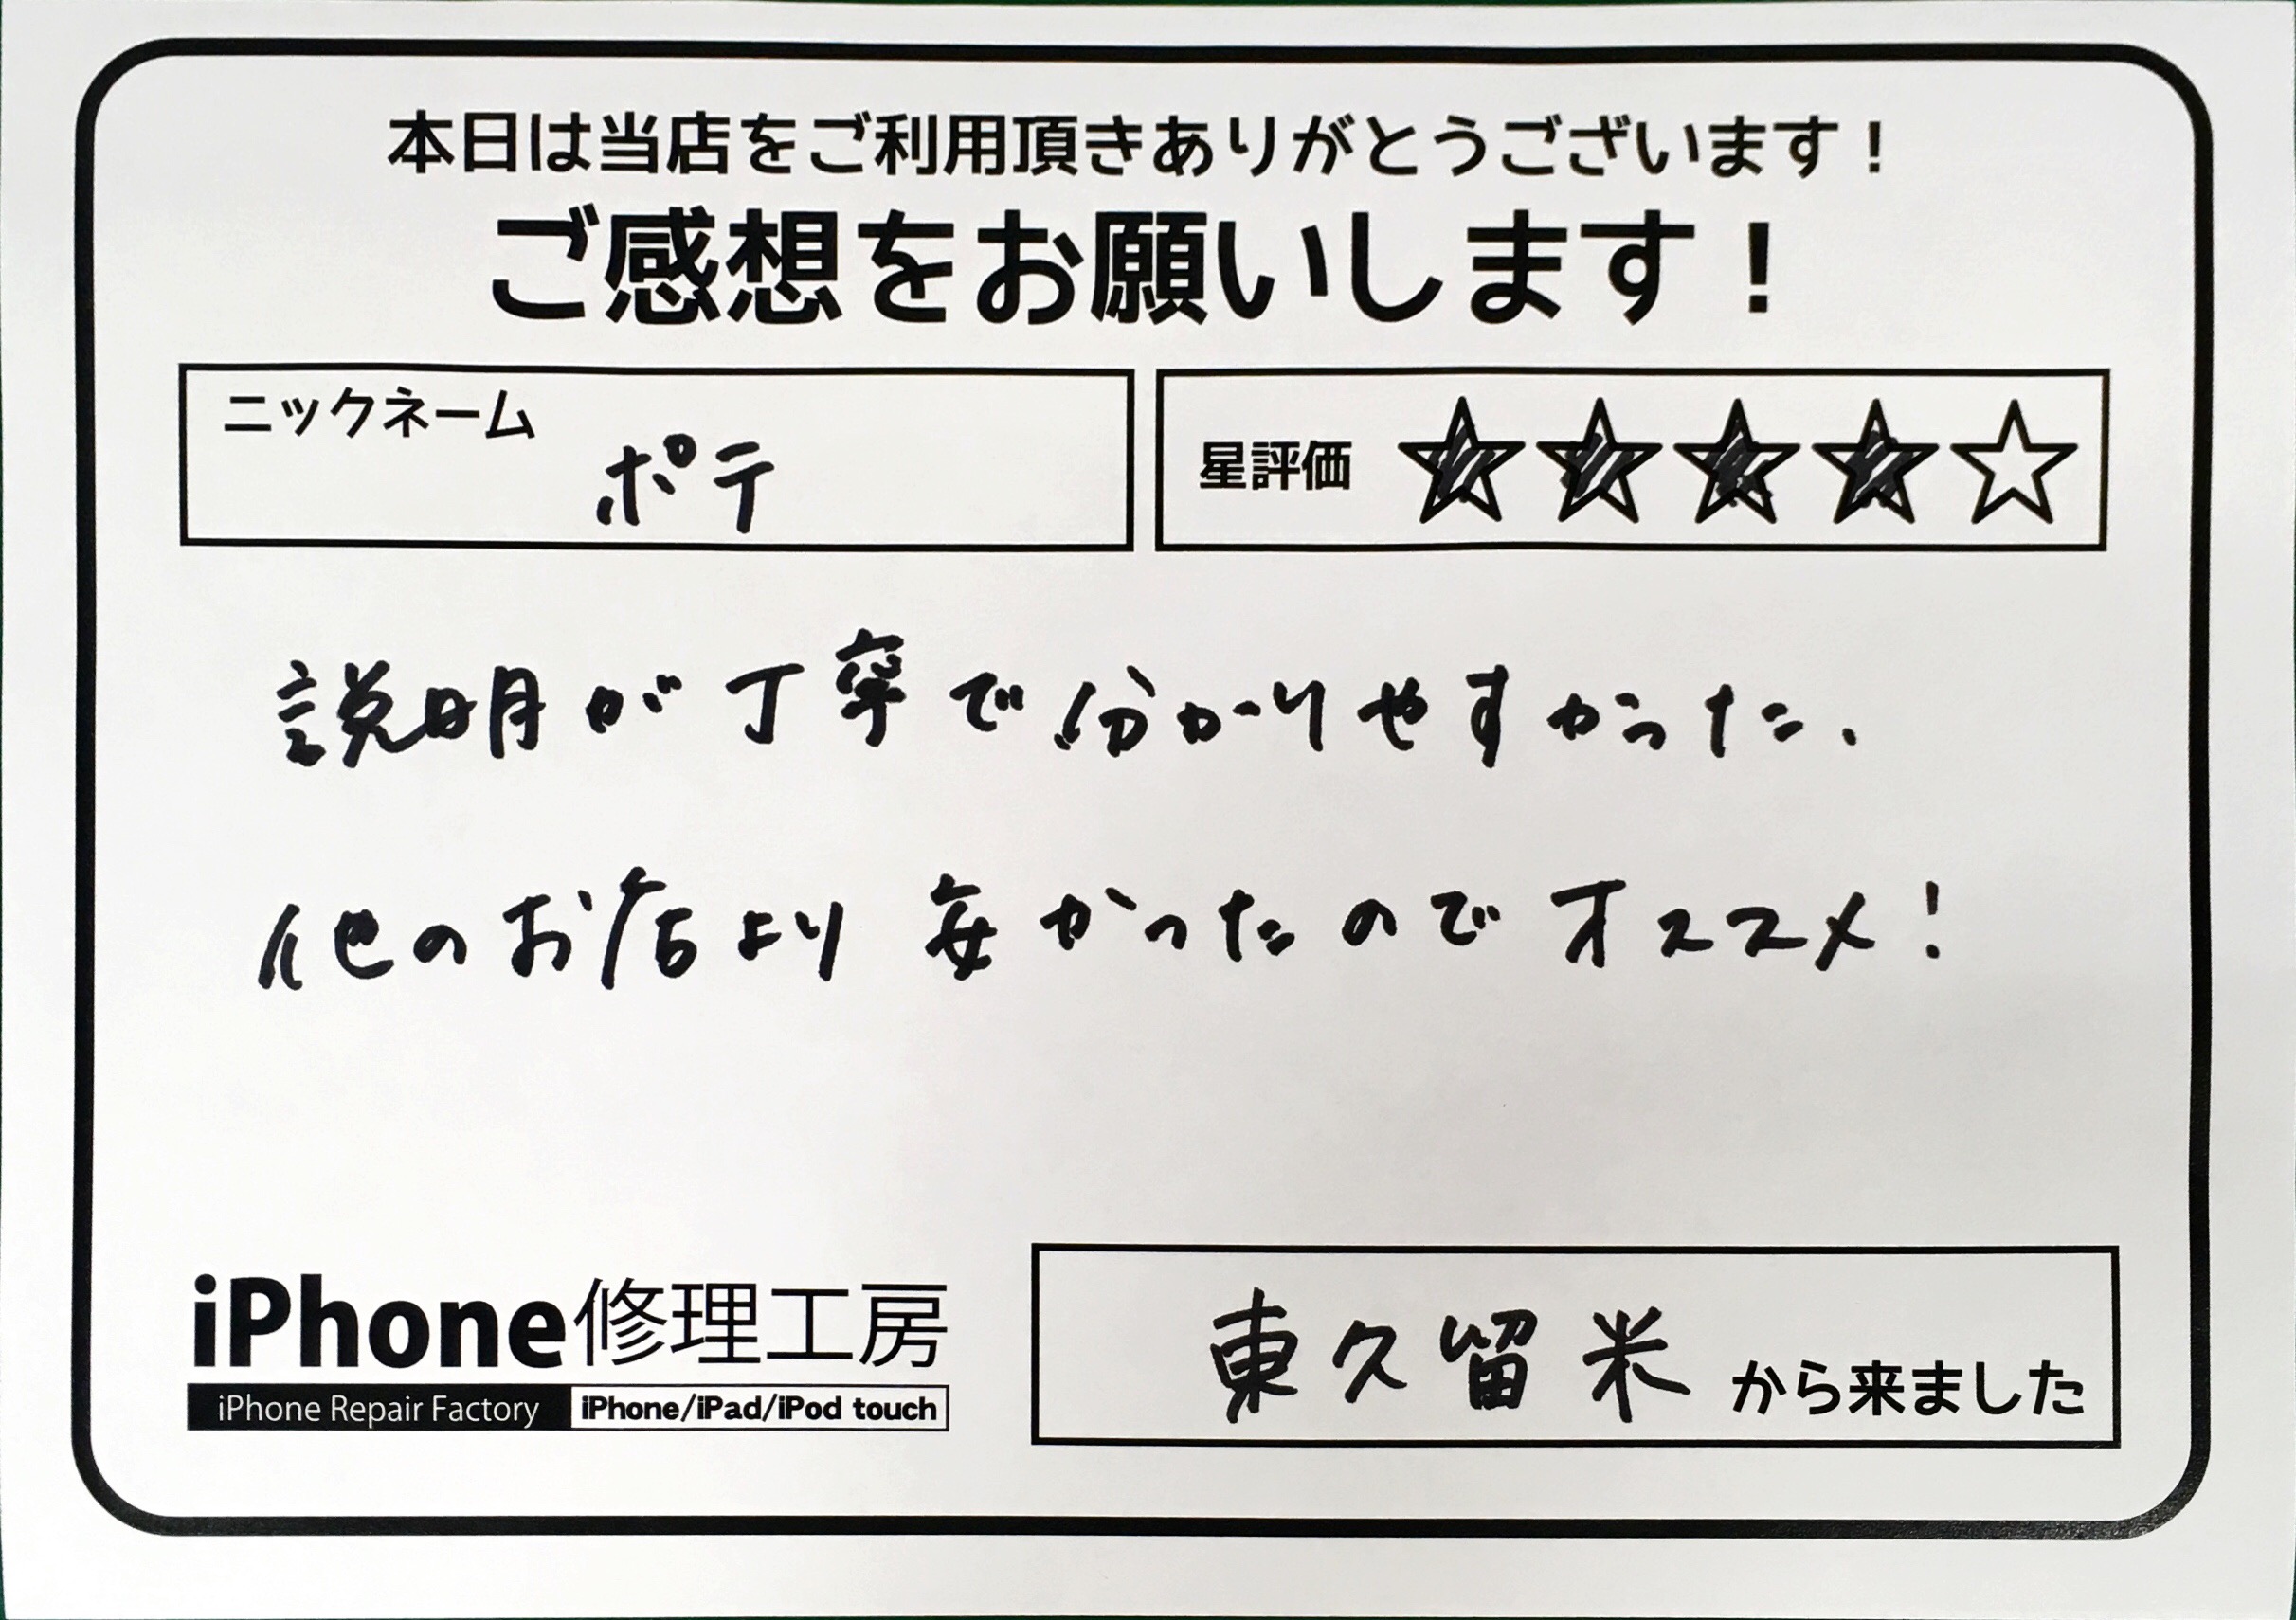 本日は当店をご利用頂きありがとうございます！
ご感想をお願いします！
ニックネーム
ポテ
星評価 ★★★★☆
説明が丁寧で分かりやすかった、
他のお店より安かったのでオススメ！
iPhone修理工房
iPhone Repair Factory iPhone/iPad/iPod touch
東久留米 から来ました